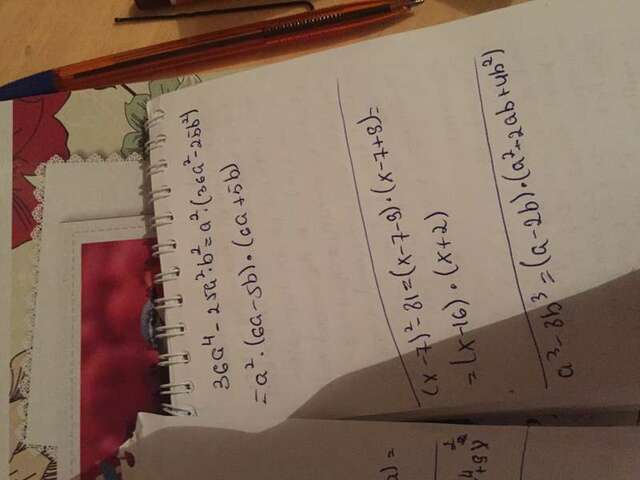 36a⁴ - 25a²·b² = a²·(36a² - 25b²)
= a²·(6a - 5b)·(6a + 5b)
(x - 7)² - 81 = (x - 7 - 9)·(x - 7 + 9) =
= (x - 16)·(x + 2)
a³ - 8b³ = (a - 2b)·(a² + 2ab + 4b²)
a) =